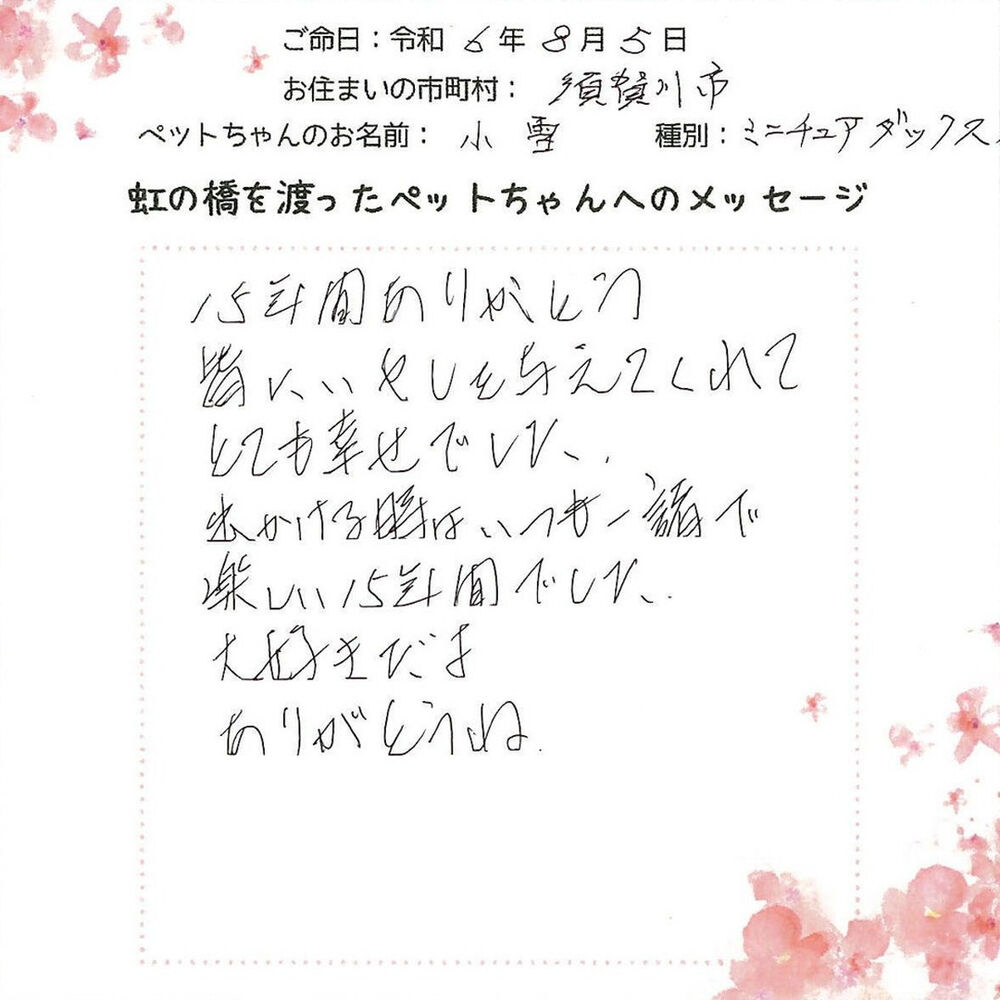 ご命日：令和 6年 8月 5日
お住まいの市町村： 須賀川市
ペットちゃんのお名前： 小雪 種別：ミニチュアダックス
虹の橋を渡ったペットちゃんへのメッセージ
15年間ありがとう
皆にいやしを与えてくれて
とても幸せでした。
出かける時はいつも一諸で
楽しい15年間でした。
大好きだよ
ありがとうね.